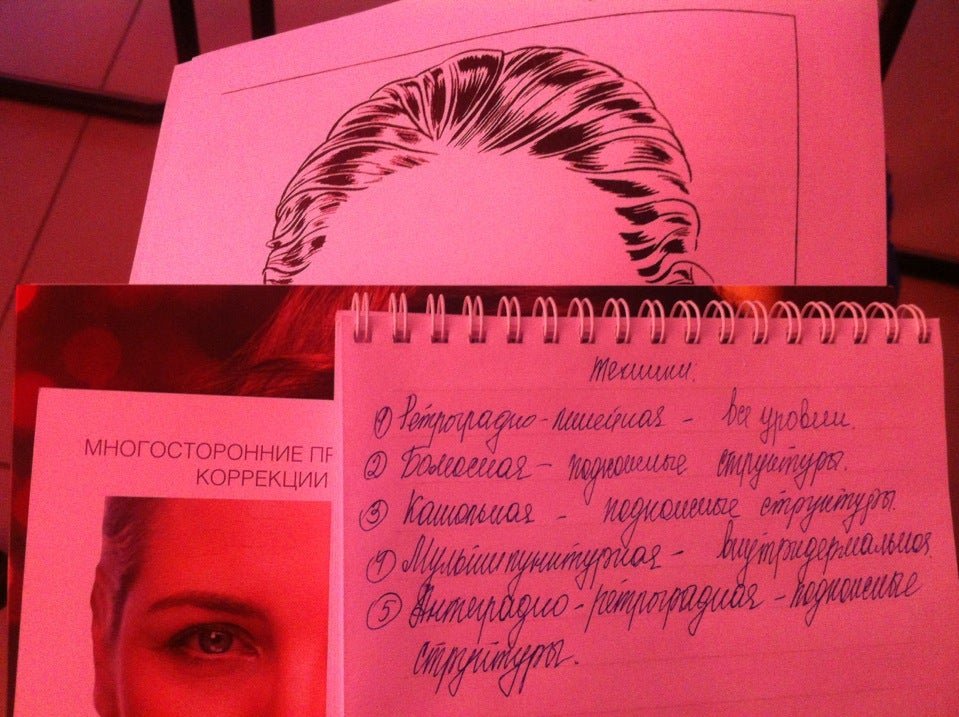 Техники.
① Ретроградно-линейная - все уровни.
② Болюсная - подкожные структуры.
③ Канюльная - подкожные структуры.
④ Мультипунктурная - внутридермальная
⑤ Антеградно-ретроградная - подкожные
структуры.
МНОГОСТОРОННИЕ ПР
КОРРЕКЦИИ